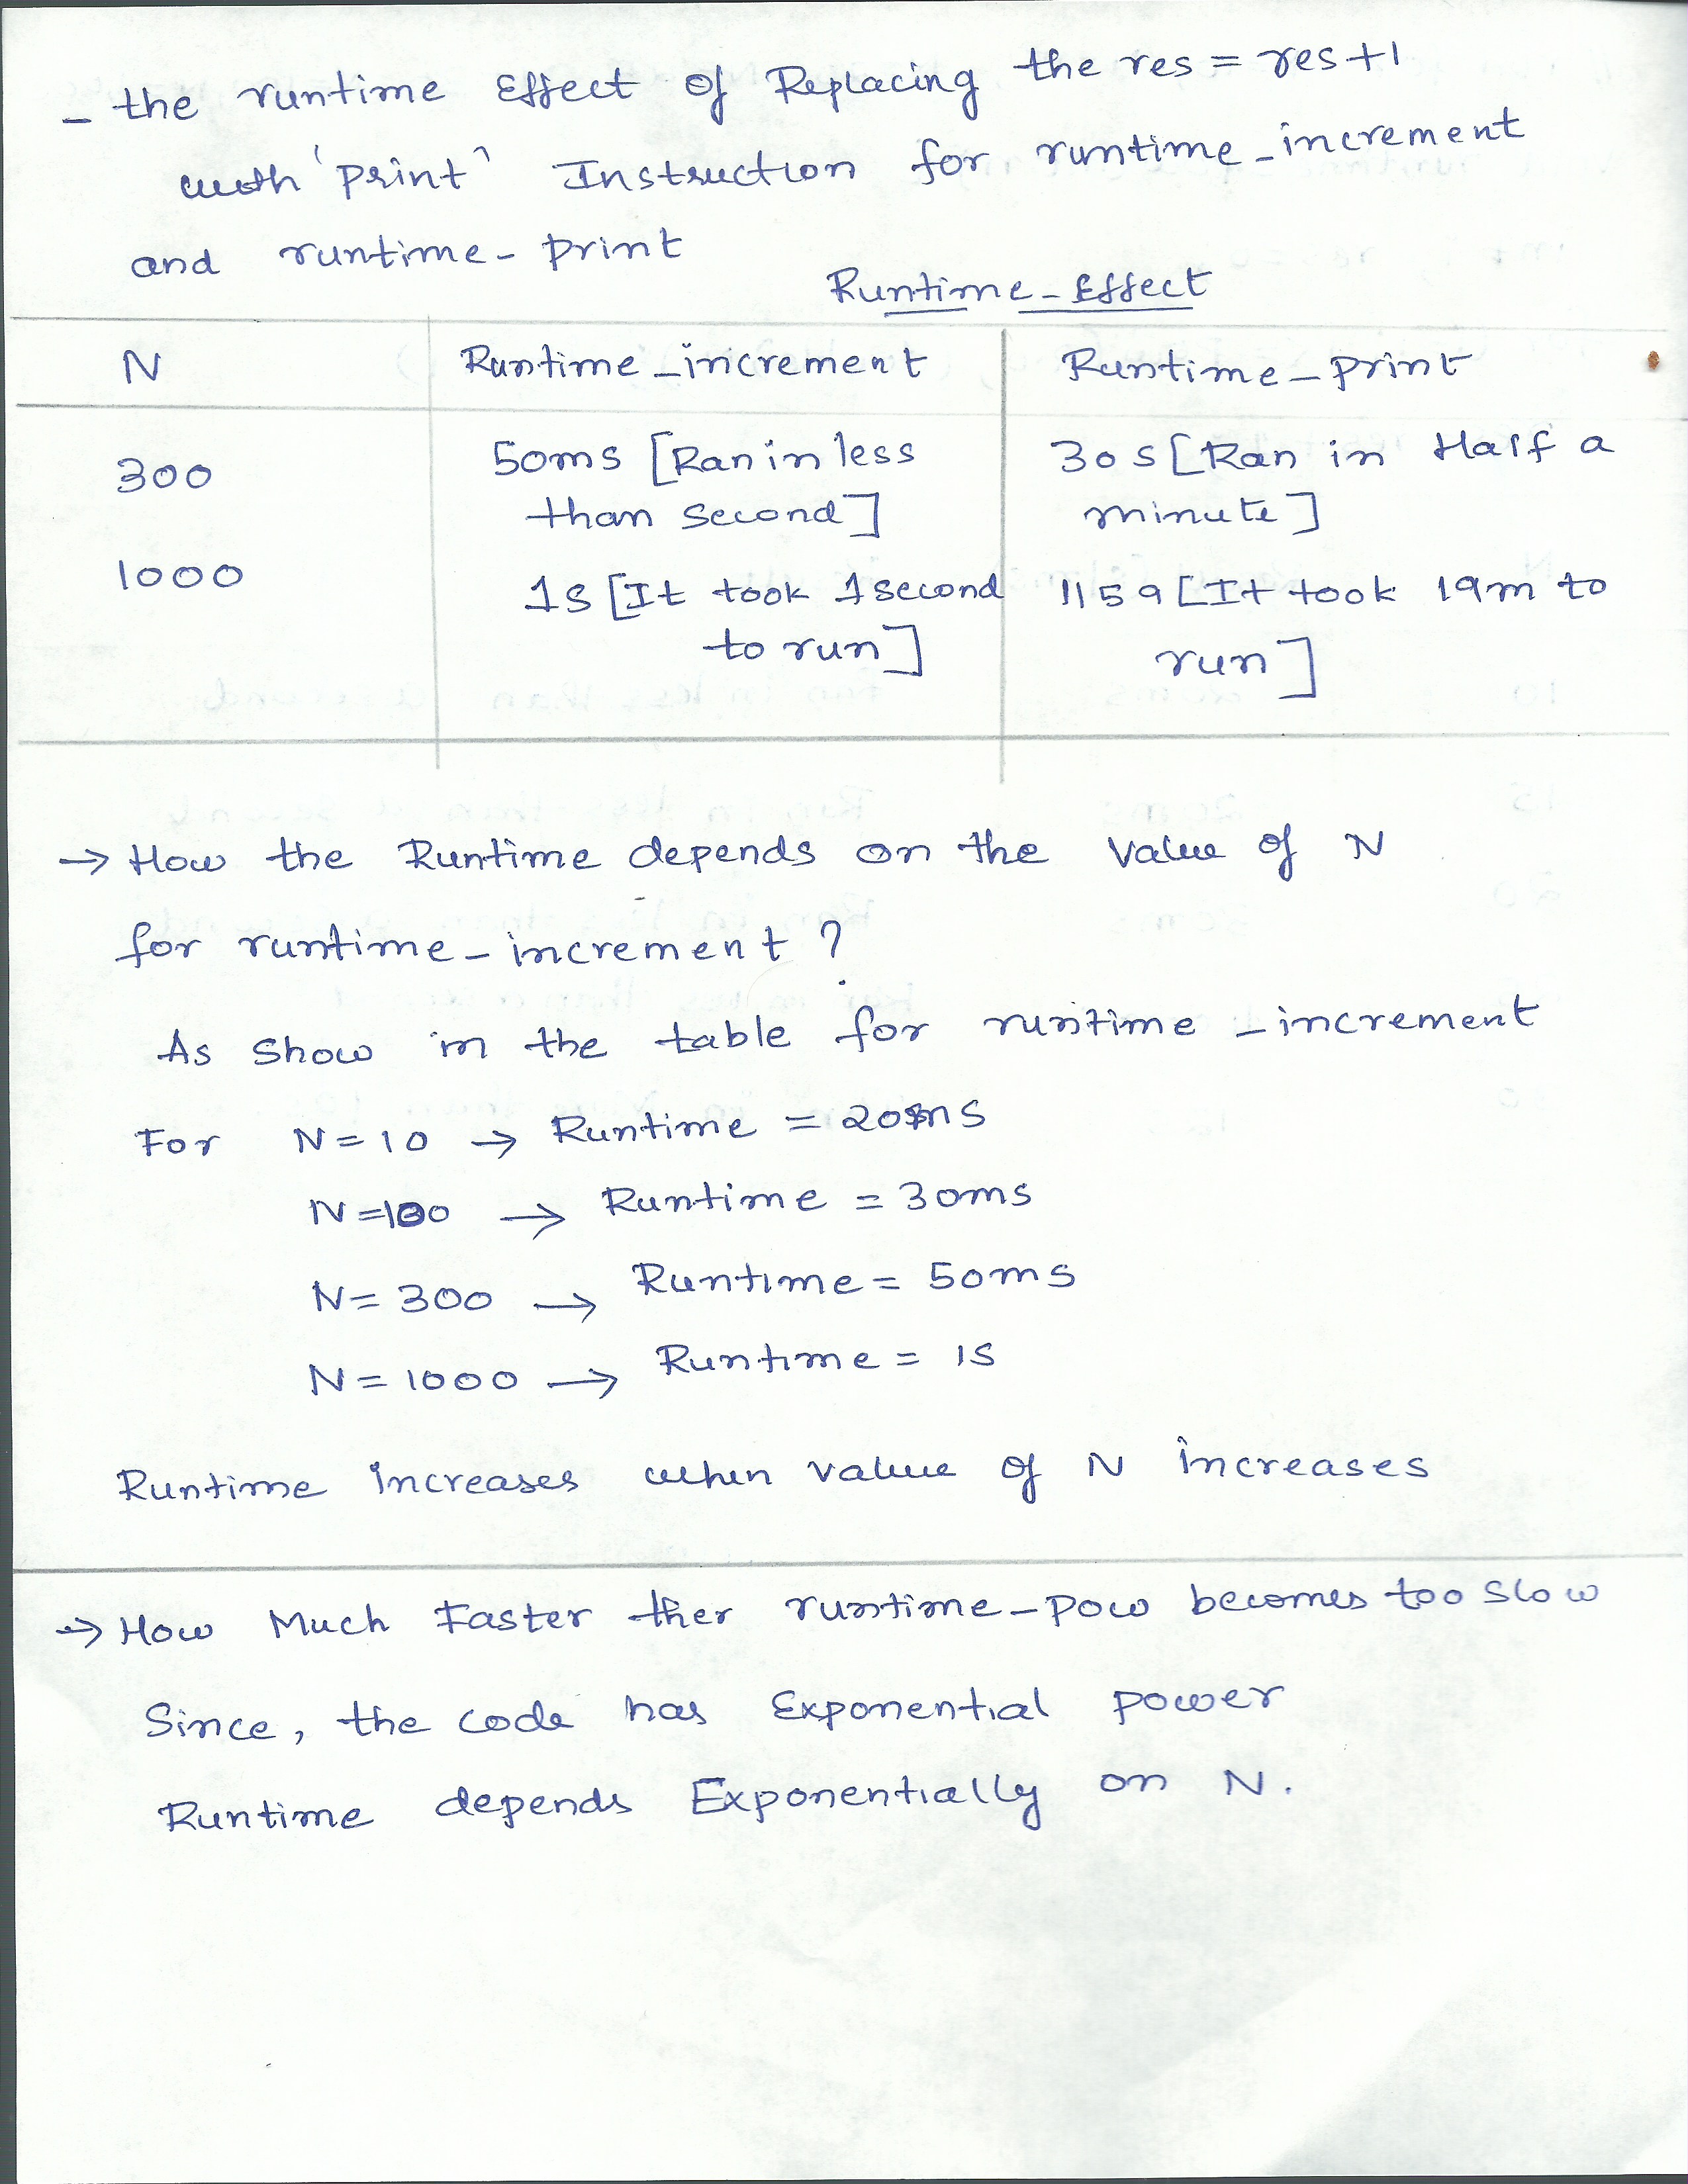 - the runtime Effect of Replacing the res = res+1
with 'print' Instruction for runtime_increment
and runtime- print
Runtime_Effect
N Runtime_increment Runtime_print
300 50ms [Ran in less than second] 30s [Ran in Half a minute]
1000 1s [It took 1 second to run] 1159 [It took 19m to run]
→ How the Runtime depends on the Value of N
for runtime_increment?
As show in the table for runtime _increment
For N=10 → Runtime = 20ms
N=100 → Runtime = 30ms
N= 300 → Runtime = 50ms
N= 1000 → Runtime = 1s
Runtime increases when value of N increases
→ How Much Faster ther runtime_pow becomes too slow
Since, the code has Exponential power
Runtime depends Exponentially on N.